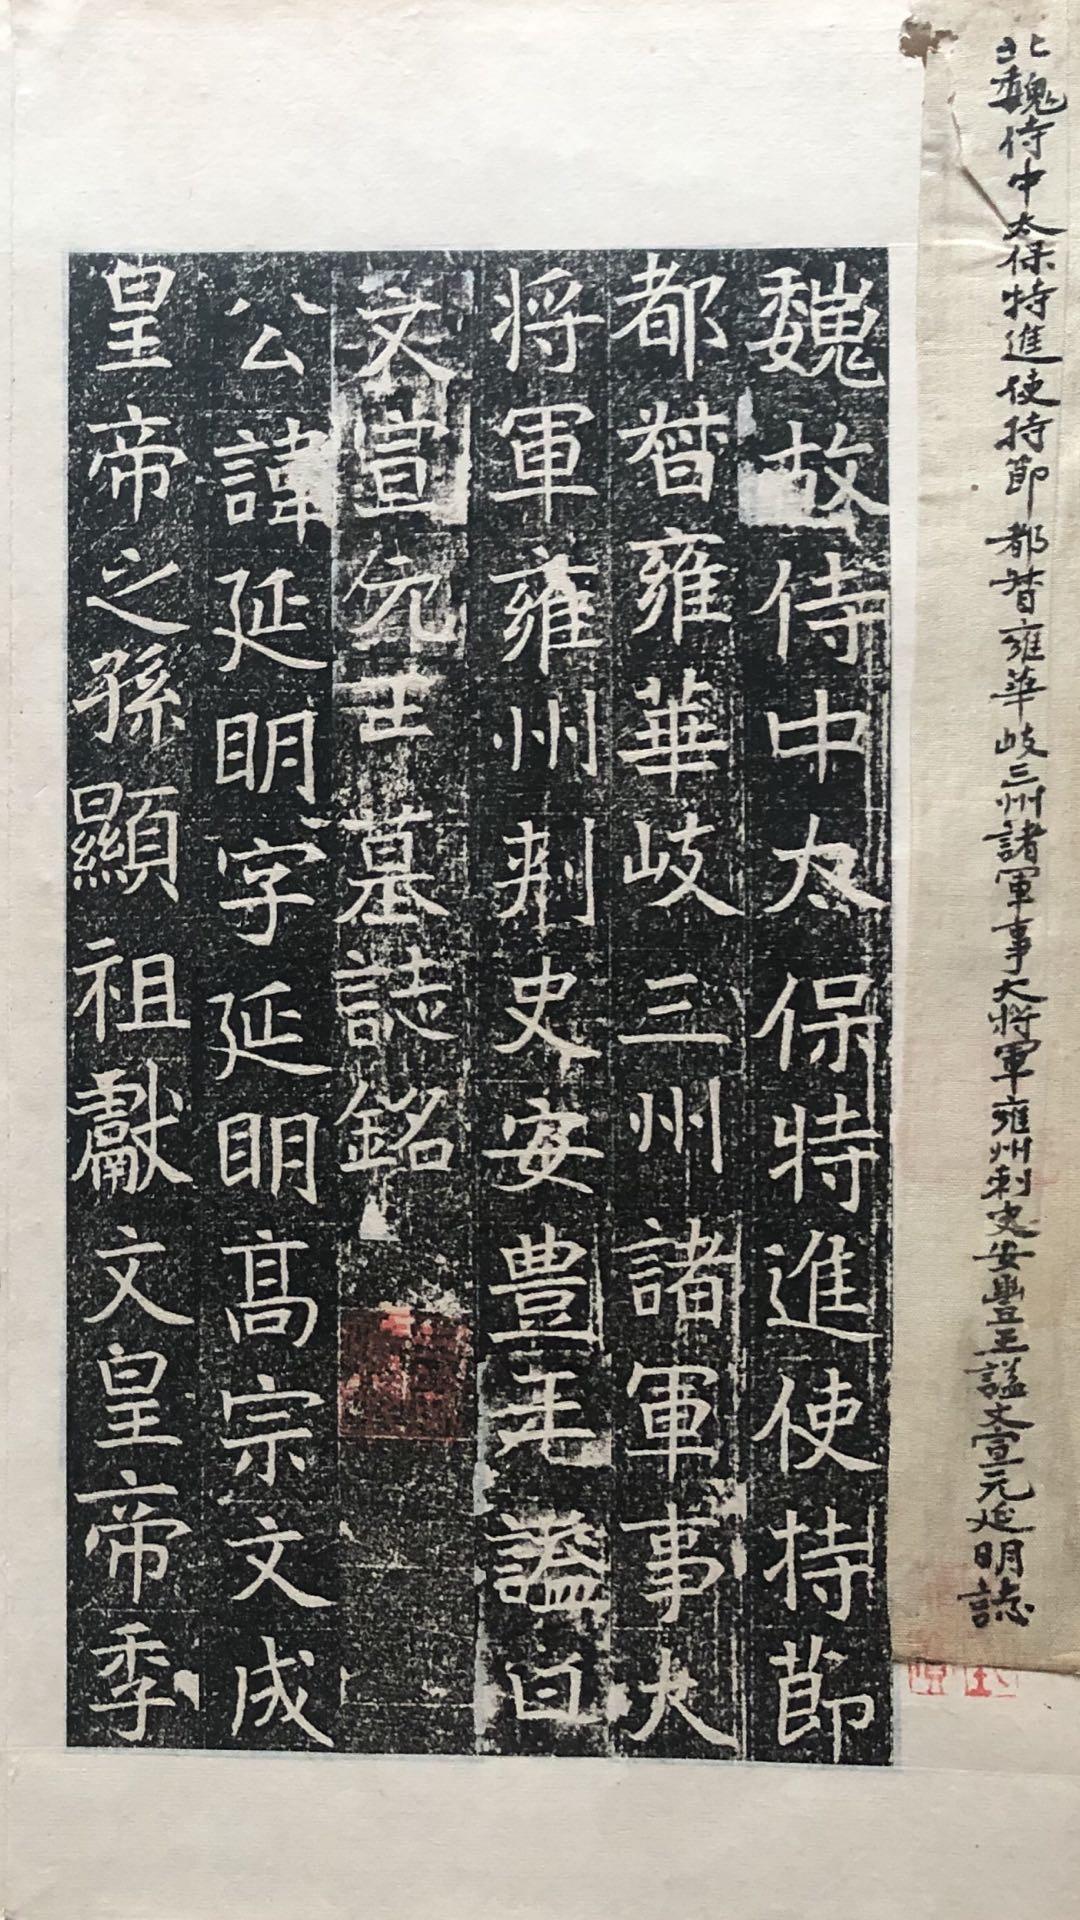 北魏侍中太保特進使持節都督雍華岐三州諸軍事大将軍雍州刺史安豊王謚文宣元延明誌
魏故侍中太保特進使持節
都督雍華岐三州諸軍事大
将軍雍州刺史安豊王謚曰
文宣元王墓誌銘
公諱延明字延明髙宗文成
皇帝之孫顯祖獻文皇帝季